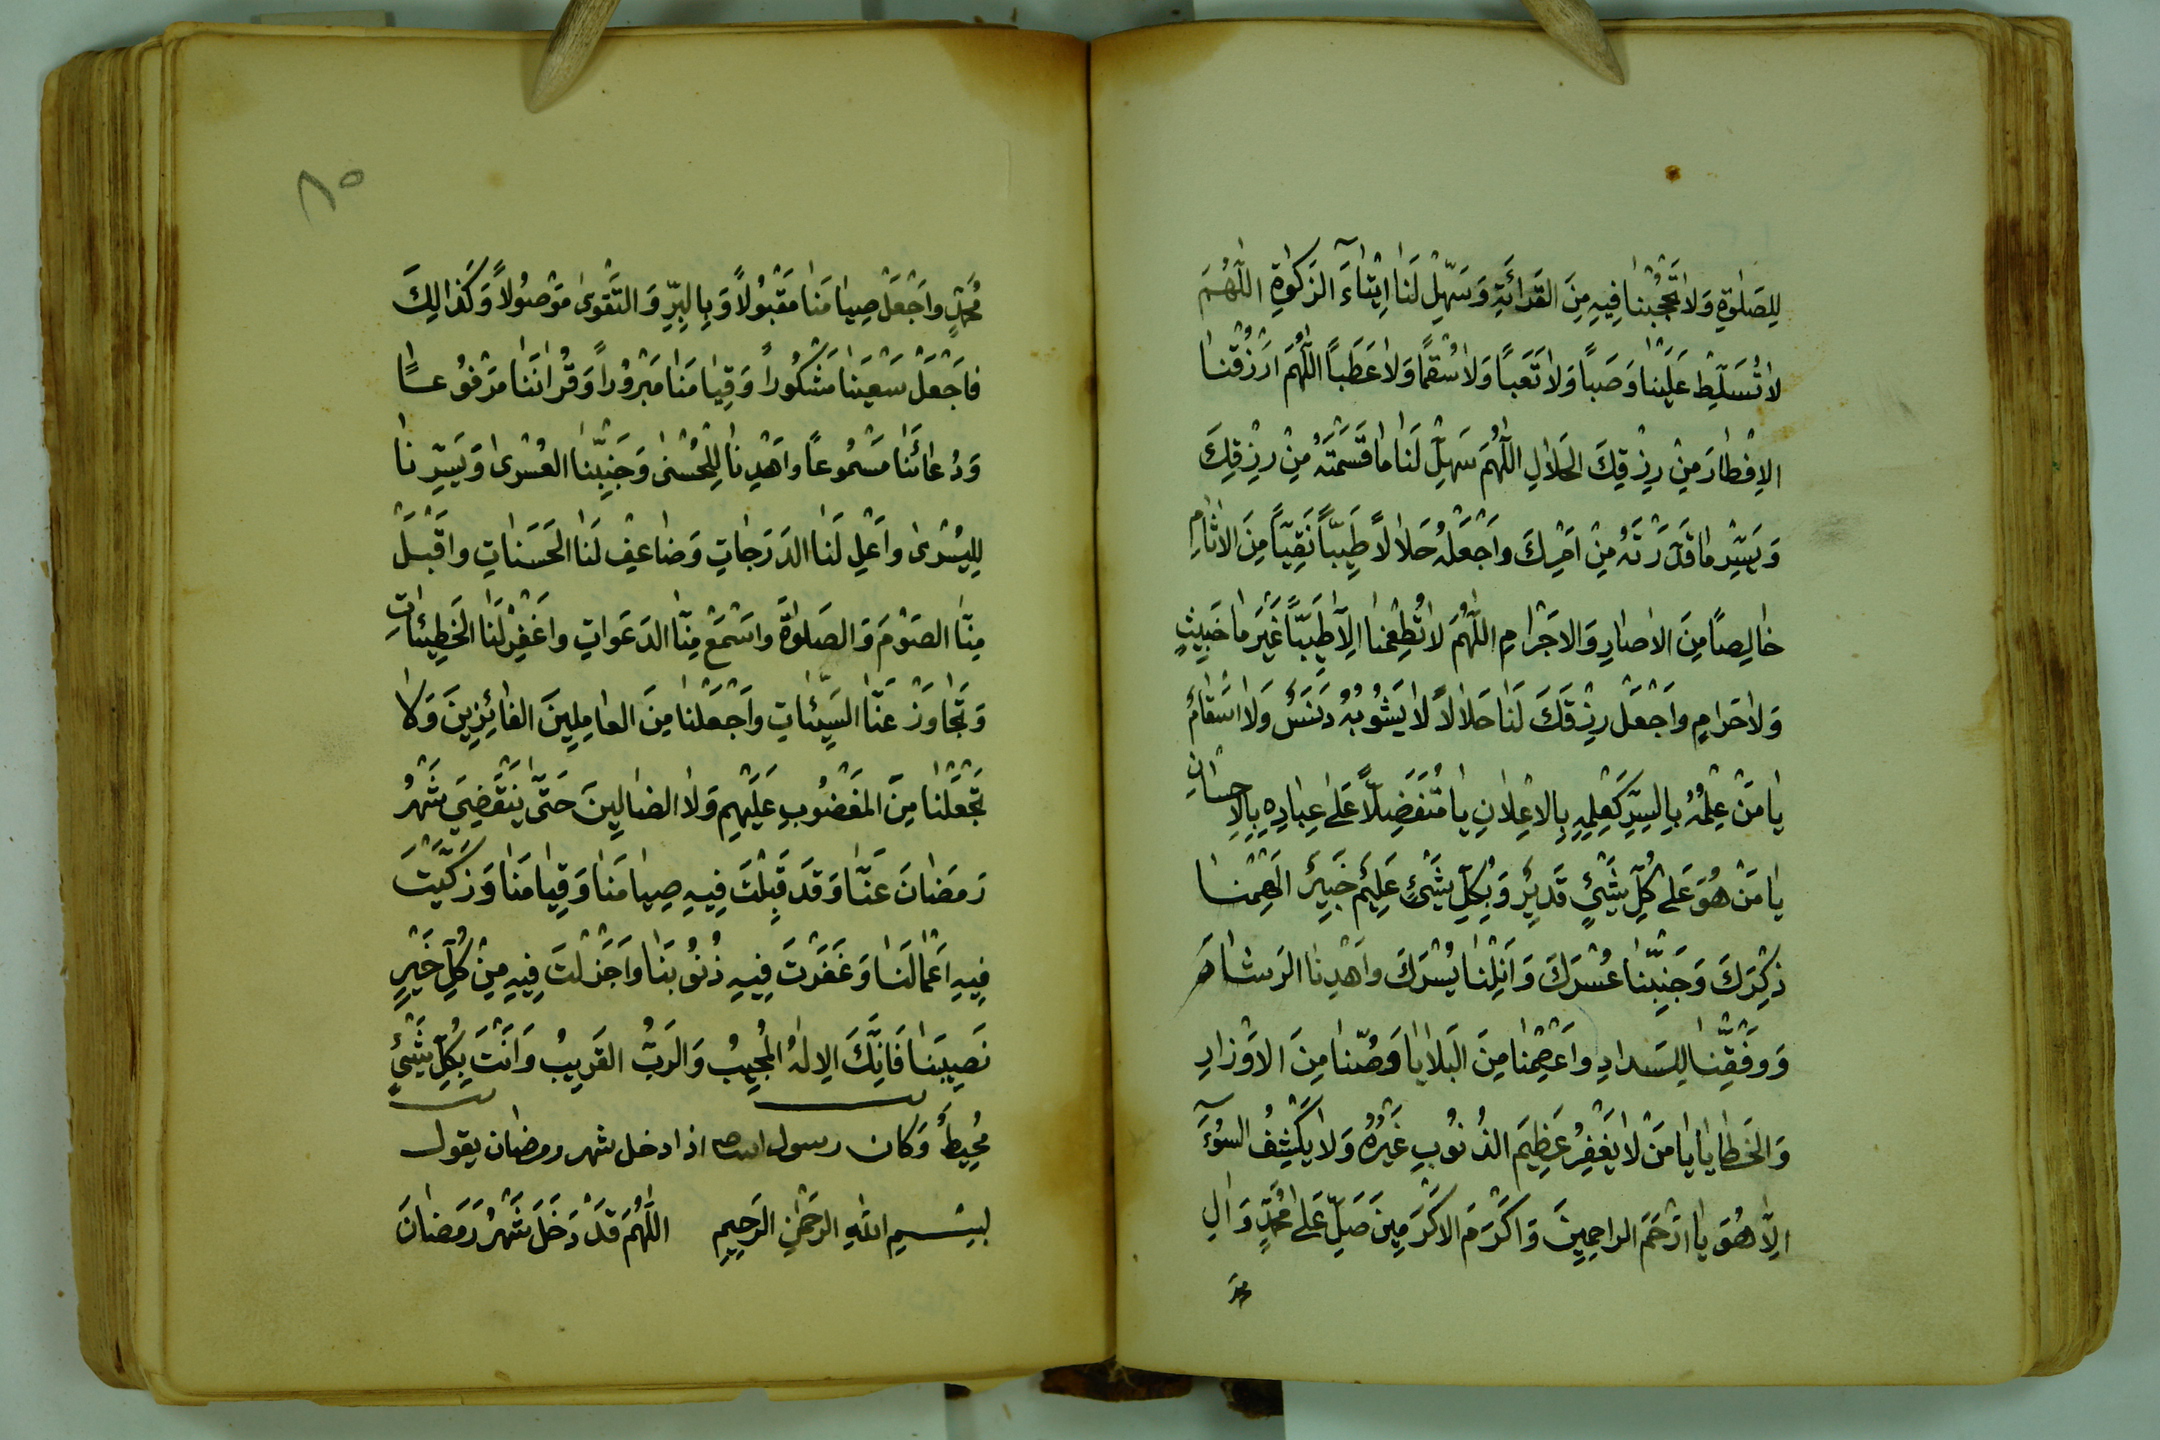 لِلصَلوٰةِ وَلا تَحْجُبْنا فِيهِ مِنَ القَرائَةِ وَسَهِّلْ لَنا اِيْتاءَ الزَكوٰةِ اللّهُمَ
لا تُسَلِّطْ عَلَيْنا وَصَباً وَلا تَعَباً وَلا سُقْماً وَلا عَطَباً اللّهُمَ ارْزُقْنا
الاِفْطارَ مِنْ رِزْقِكَ الحَلالِ اللّهُمَ سَهِّلْ لَنا ما قَسَمْتَهُ مِنْ رِزْقِكَ
وَيَسِّرْ ما قَدَّرْتَهُ مِنْ اَمْرِكَ واَجْعَلْهُ حَلالاً طَيِّباً نَقِيّاً مِنَ الاثامِ
خالِصًا مِنَ الاصارِ وَالاَجْرامِ اللّهُمَ لا تُطْعِمْنا اِلاّ طَيِّبَاً غَيْرَ ما خَبِيثٍ
وَلا حَرامٍ واَجْعَلْ رِزْقَكَ لَنا حَلالاً لا يَشُوبُهُ دَنَسٌ وَلا اَسْقامٌ
يا مَنْ عِلْمُهُ بِالسِرِّ كَعِلْمِهِ بِالاِعْلانِ يا مُتَفَضِلاً عَلىٰ عِبادِهِ بِالاِحْسانِ
يا مَنْ هُوَ عَلىٰ كُلِّ شَيْئٍ قَدِيْرٍ وَبِكُلِّ شَيْئٍ عَلِيْمٌ خَبِيْرٌ اَلْهِمْنا
ذِكْرَكَ وَجَنِّبْنا عُسْرَكَ وَاَنِلْنا يُسْرَكَ واَهْدِنا الرَشادَ
وَوَفِّقْنا لِلسَدادِ واَعْصِمْنا مِنَ البَلايا وَصُنّا مِنَ الاَوْزارِ
وَالخَطايا يا مَنْ لا يَغْفِرُ عَظِيمَ الذُنُوبِ غَيْرُهُ وَلا يَكْشِفُ السُوءَ
اِلاّ هُوَ يا اَرْحَمَ الراحِمِينَ وَاَكْرَمَ الاَكْرَمِينَ صَلِّ عَلىٰ مُحَمَّدٍ وَالِ
محمد
٨٥
مُحَمَّدٍ واَجْعَلْ صِيامَنا مَقْبُولاً وَبِالبِرِّ وَالتَقْوىٰ مَوْصُولاً وَكَذالِكَ
فاَجْعَلْ سَعْيَنا مَشْكُوراً وَقِيامَنا مَبْرُوراً وَقُرْانَنا مَرْفُوعاً
وَدُعائَنا مَسْمُوعاً واَهْدِنا لِلْحُسْنىٰ وَجَنِّبْنا العُسْرىٰ وَيَسِّرْنا
لِليُسْرىٰ واَعْلِ لَنا الدَرَجاتِ وَضاعِفْ لَنا الحَسَناتِ واَقْبَلْ
مِنّا الصَوْمَ وَالصَلوٰةَ واَسْمَعْ مِنّا الدَعَواتِ واَغْفِرْ لَنا الخَطِيئاتِ
وَتَجاوَزْ عَنّا السَيِّئاتِ واَجْعَلْنا مِنَ العامِلِينَ الفائِزِينَ وَلا
تَجْعَلْنا مِنَ المَغْضُوبِ عَلَيْهِمْ وَلا الضالِينَ حَتّىٰ يَنْقَضِيَ شَهْرُ
رَمَضانَ عَنّا وَقَد قَبِلْتَ فِيهِ صِيامَنا وَقِيامَنا وَزَكَّيْتَ
فِيهِ اَعْمالَنا وَغَفَرْتَ فِيهِ ذُنُوبَنا واَجْزَلتَ فِيهِ مِنْ كُلِّ خَيْرٍ
نَصِيبَنا فَاِنَّكَ الاِلهُ المُجِيبُ وَالرَبُّ القَرِيبُ وَاَنْتَ بِكُلِّ شَيْئٍ
مُحِيطٌ وَكان رسول الله ص اذا دخل شهر رمضان يقول
بِسْمِ اللهِ الرَحْمٰنِ الرَحِيمِ اللّهُمَ قَدْ دَخَلَ شَهْرُ رَمَضانَ